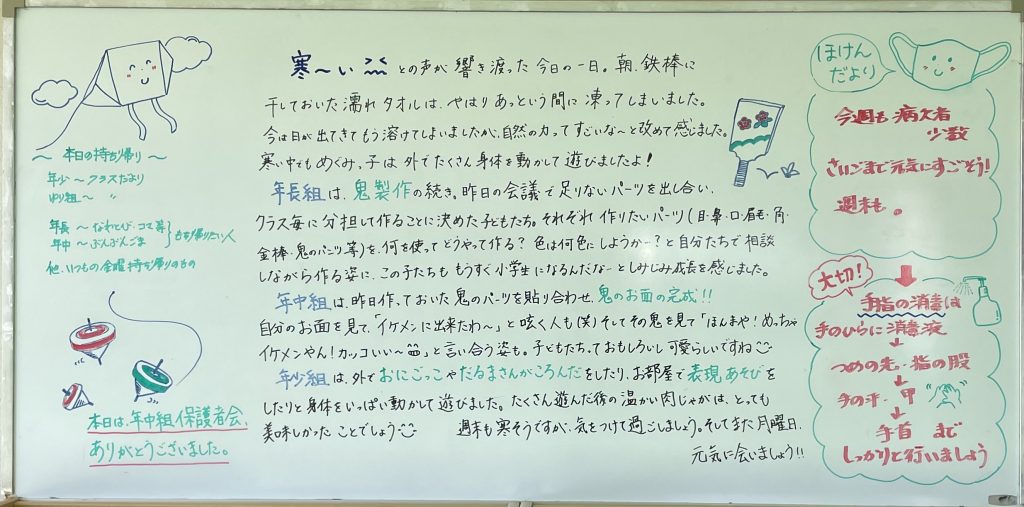 ～ 本日の持ち帰り ～
年少 ～ クラスだより
ゆり組 ～ 〃
年長 ～ なわとび・コマ等
年中 ～ ぶんぶんごま
もち帰りたい人
他、いつもの金曜持ち帰りのもの
本日は、年中組 保護者会、
ありがとうございました。
寒～い との声が 響き渡った 今日の一日。朝、鉄棒に
干しておいた 濡れ タオルは、やはり あっという間に 凍ってしまいました。
今は日が出てきてもう溶けてしまいましたが、自然の力ってすごいな～と改めて感じました。
寒い中でも めぐみっ子は 外でたくさん 身体を動かして 遊びましたよ！
年長組は、鬼製作の続き。昨日の会議で足りないパーツを出し合い、
クラス毎に分担して作ることに決めた子どもたち。それぞれ作りたいパーツ（目・鼻・口・眉毛・角・
金棒・鬼のパンツ等）を、何を使ってどうやって作る？ 色は何色にしようか…？と自分たちで相談
しながら作る姿に、この子たちも もうすぐ小学生になるんだな…としみじみ成長を感じました。
年中組は、昨日作っておいた鬼のパーツを貼り合わせ、鬼のお面の完成！！
自分のお面を見て、「イケメンに出来たわ～」と呟く人も（笑）そしてその鬼を見て「ほんまや！めっちゃ
イケメンやん！カッコいい～」と言い合う姿も。子どもたちっておもしろいし可愛らしいですね
年少組は、外でおにごっこやだるまさんがころんだをしたり、お部屋で表現あそびを
したりと身体をいっぱい動かして遊びました。たくさん遊んだ後の温かい肉じゃがは、とっても
美味しかったことでしょう 週末も寒そうですが、気をつけて過ごしましょう。そしてまた月曜日、
元気に会いましょう！！
ほけん
だより
今週も 病欠者
少数
さいごまで元気にすごそう！
週末も。
大切！
手指の消毒は
手のひらに消毒液
つめの先・指の股
手の平・甲
手首 まで
しっかりと行いましょう